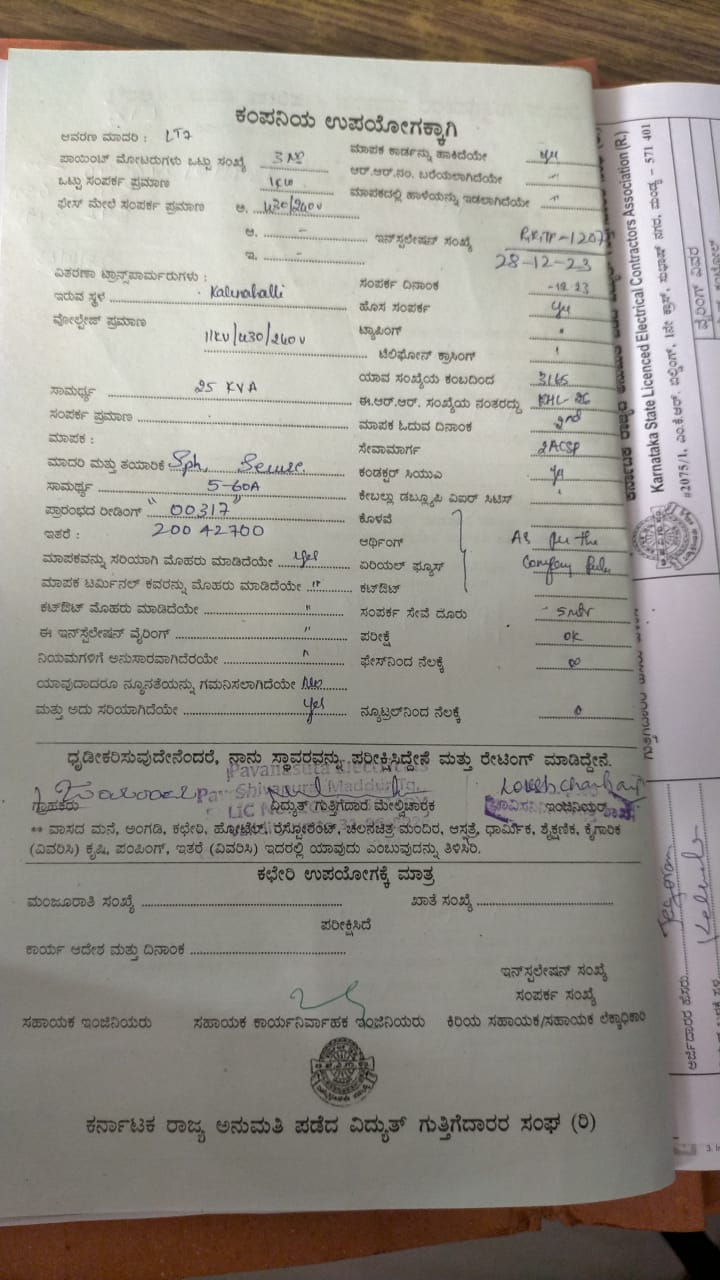 ಕಂಪನಿಯ ಉಪಯೋಗಕ್ಕಾಗಿ
ಆವರಣ ಮಾದರಿ : LT7
ಪಾಯಿಂಟ್ ಮೋಟರುಗಳು ಒಟ್ಟು ಸಂಖ್ಯೆ 3 No ಮಾಪಕ ಕಾರ್ಡನ್ನು ಹಾಕಿದೆಯೇ yes
ಒಟ್ಟು ಸಂಪರ್ಕ ಪ್ರಮಾಣ 1KW ಆರ್.ಆರ್.ನಂ. ಬರೆಯಲಾಗಿದೆಯೇ "
ಫೇಸ್ ಮೇಲೆ ಸಂಪರ್ಕ ಪ್ರಮಾಣ ಅ. 430/240V ಮಾಪಕದಲ್ಲಿ ಹಾಳೆಯನ್ನು ಇಡಲಾಗಿದೆಯೇ "
ಆ. - ಇನ್‌ಸ್ಟಲೇಷನ್ ಸಂಖ್ಯೆ
ಇ. - 28-12-23
ವಿತರಣಾ ಟ್ರಾನ್ಸ್‌ಫಾರ್ಮರುಗಳು : ಸಂಪರ್ಕ ದಿನಾಂಕ -12-23
ಇರುವ ಸ್ಥಳ ಹೊಸ ಸಂಪರ್ಕ yes
ವೋಲ್ಟೇಜ್ ಪ್ರಮಾಣ 11KV/430/240V ಟ್ಯಾಪಿಂಗ್
ಟೆಲಿಫೋನ್ ಕ್ರಾಸಿಂಗ್
ಸಾಮರ್ಥ್ಯ 25 KVA ಯಾವ ಸಂಖ್ಯೆಯ ಕಂಬದಿಂದ
ಸಂಪರ್ಕ ಪ್ರಮಾಣ ಈ.ಆರ್.ಆರ್. ಸಂಖ್ಯೆಯ ನಂತರದ್ದು KHL-26
ಮಾಪಕ : ಮಾಪಕ ಓದುವ ದಿನಾಂಕ 2nd
ಮಾದರಿ ಮತ್ತು ತಯಾರಿಕೆ Sph, Secure ಸೇವಾಮಾರ್ಗ 2ACSR
ಸಾಮರ್ಥ್ಯ 5-60A ಕಂಡಕ್ಟರ್ ಸಿಯುಎ
ಪ್ರಾರಂಭದ ರೀಡಿಂಗ್ "00317" ಕೇಬಲ್ಲು ಡಬ್ಲ್ಯೂಪಿ ವಿಐರ್ ಸಿಟಿಸ್
ಇತರೆ : 20042700 ಕೊಳವೆ
ಆರ್ಥಿಂಗ್ As per the
ಮಾಪಕವನ್ನು ಸರಿಯಾಗಿ ಮೊಹರು ಮಾಡಿದೆಯೇ yes ಏರಿಯಲ್ ಫ್ಯೂಸ್ Company Rules
ಮಾಪಕ ಟರ್ಮಿನಲ್ ಕವರನ್ನು ಮೊಹರು ಮಾಡಿದೆಯೇ " ಕಟ್‌ಔಟ್
ಕಟ್‌ಔಟ್ ಮೊಹರು ಮಾಡಿದೆಯೇ " ಸಂಪರ್ಕ ಸೇವೆ ದೂರು
ಈ ಇನ್‌ಸ್ಟಲೇಷನ್ ವೈರಿಂಗ್ " ಪರೀಕ್ಷೆ OK
ನಿಯಮಗಳಿಗೆ ಅನುಸಾರವಾಗಿದೆರಯೇ " ಫೇಸ್‌ನಿಂದ ನೆಲಕ್ಕೆ ∞
ಯಾವುದಾದರೂ ನ್ಯೂನತೆಯನ್ನು ಗಮನಿಸಲಾಗಿದೆಯೇ No
ಮತ್ತು ಅದು ಸರಿಯಾಗಿದೆಯೇ yes ನ್ಯೂಟ್ರಲ್‌ನಿಂದ ನೆಲಕ್ಕೆ 0
ಧೃಡೀಕರಿಸುವುದೇನೆಂದರೆ, ನಾನು ಸ್ಥಾವರವನ್ನು ಪರೀಕ್ಷಿಸಿದ್ದೇನೆ ಮತ್ತು ರೇಟಿಂಗ್ ಮಾಡಿದ್ದೇನೆ.
ಗ್ರಾಹಕರು ವಿದ್ಯುತ್ ಗುತ್ತಿಗೆದಾರ ಮೇಲ್ವಿಚಾರಕ ಇಂಜಿನಿಯರ್
** ವಾಸದ ಮನೆ, ಅಂಗಡಿ, ಕಛೇರಿ, ಹೋಟೆಲ್, ರೆಸ್ಟೋರೆಂಟ್, ಚಲನಚಿತ್ರ ಮಂದಿರ, ಆಸ್ಪತ್ರೆ, ಧಾರ್ಮಿಕ, ಶೈಕ್ಷಣಿಕ, ಕೈಗಾರಿಕ
(ವಿವರಿಸಿ) ಕೃಷಿ, ಪಂಪಿಂಗ್, ಇತರೆ (ವಿವರಿಸಿ) ಇದರಲ್ಲಿ ಯಾವುದು ಎಂಬುವುದನ್ನು ತಿಳಿಸಿರಿ.
ಕಛೇರಿ ಉಪಯೋಗಕ್ಕೆ ಮಾತ್ರ
ಮಂಜೂರಾತಿ ಸಂಖ್ಯೆ ಖಾತೆ ಸಂಖ್ಯೆ
ಪರೀಕ್ಷಿಸಿದೆ
ಕಾರ್ಯ ಆದೇಶ ಮತ್ತು ದಿನಾಂಕ
ಇನ್‌ಸ್ಟಲೇಷನ್ ಸಂಖ್ಯೆ
ಸಂಪರ್ಕ ಸಂಖ್ಯೆ
ಸಹಾಯಕ ಇಂಜಿನಿಯರು ಸಹಾಯಕ ಕಾರ್ಯನಿರ್ವಾಹಕ ಇಂಜಿನಿಯರು ಕಿರಿಯ ಸಹಾಯಕ/ಸಹಾಯಕ ಲೆಕ್ಕಾಧಿಕಾರಿ
ಕರ್ನಾಟಕ ರಾಜ್ಯ ಅನುಮತಿ ಪಡೆದ ವಿದ್ಯುತ್ ಗುತ್ತಿಗೆದಾರರ ಸಂಘ (ರಿ)
Karnataka State Licenced Electrical Contractors Association (R.)
#2075/1, ಎಂ.ಕೆ.ಆರ್. ಬಿಲ್ಡಿಂಗ್, 1ನೇ ಕ್ರಾಸ್, ಸುಭಾಷ್ ನಗರ, ಮಂಡ್ಯ - 571 401
ವೈರಿಂಗ್ ವಿವರ
ಅರ್ಜಿದಾರರ ಹೆಸರು